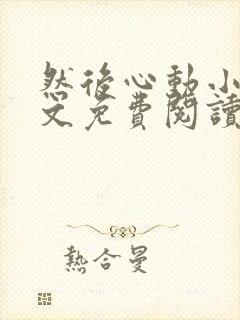 然後心動小
文免費閱讀
熱合曼